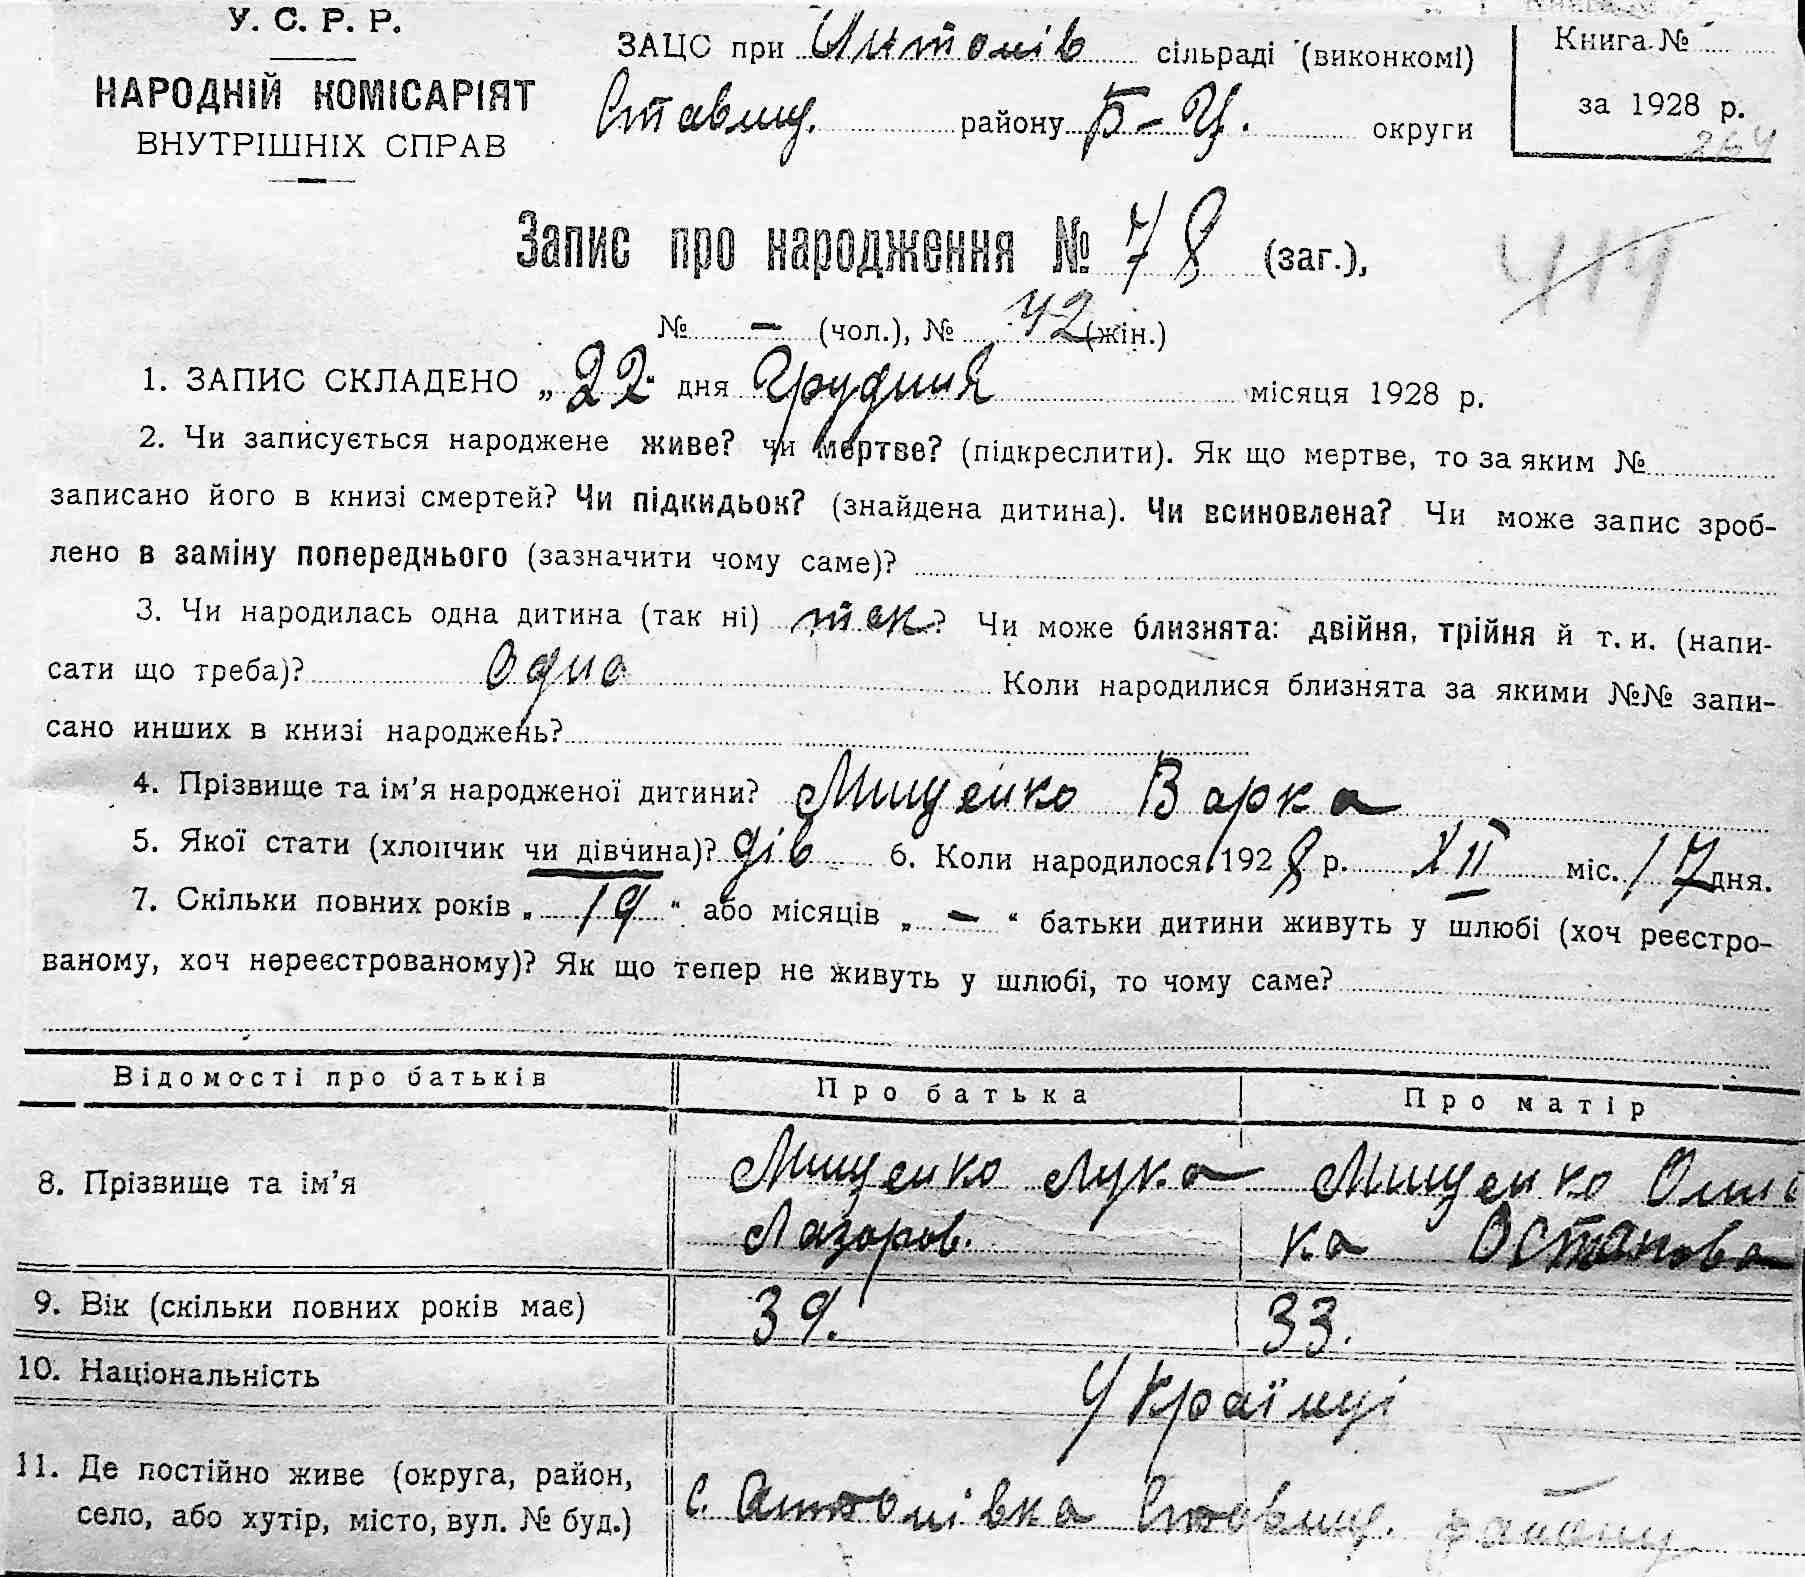 У. С. Р. Р.
НАРОДНІЙ КОМІСАРІЯТ
ВНУТРІШНІХ СПРАВ
ЗАЦС при Антонів сільраді (виконкомі)
Ставищ. району Б-Ц. округи
Книга №
за 1928 р.
264
Запис про народження № 78 (заг.),
414
№ — (чол.), № 42 (жін.)
1. ЗАПИС СКЛАДЕНО „22" дня Грудня місяця 1928 р.
2. Чи записується народжене живе? чи мертве? (підкреслити). Як що мертве, то за яким №
записано його в книзі смертей? Чи підкидьок? (знайдена дитина). Чи всиновлена? Чи може запис зроб-
лено в заміну попереднього (зазначити чому саме)?
3. Чи народилась одна дитина (так ні) так? Чи може близнята: двійня, трійня й т. и. (напи-
сати що треба)? Одно Коли народилися близнята за якими №№ запи-
сано инших в книзі народжень?
4. Прізвище та ім'я народженої дитини? Мищенко Варка
5. Якої стати (хлопчик чи дівчина)? дів 6. Коли народилося 1928 р. XII міс. 17 дня.
7. Скільки повних років „19" або місяців „—" батьки дитини живуть у шлюбі (хоч реєстро-
ваному, хоч нереєстрованому)? Як що тепер не живуть у шлюбі, то чому саме?
Відомості про батьків Про батька Про матір
8. Прізвище та ім'я Мищенко Лука Мищенко Оли
Лазоров. ка Остапова
9. Вік (скільки повних років має) 39. 33.
10. Національність Українці
11. Де постійно живе (округа, район,
село, або хутір, місто, вул. № буд.) с. Антонівка Ставищ. району